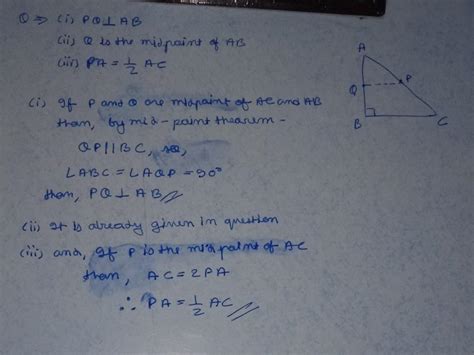 Q ⇒ (i) PQ⊥AB
(ii) Q is the midpoint of AB
(iii) PA = 1/2 AC
A
Q
P
B
C
(i) If P and Q are midpoint of AC and AB
then, by mid-point theorem -
QP||BC, so,
∠ABC = ∠AQP = 90°
then, PQ ⊥ AB //
(ii) It is already given in question
(iii) and, If P is the mid point of AC
than, AC = 2PA
∴ PA = 1/2 AC //